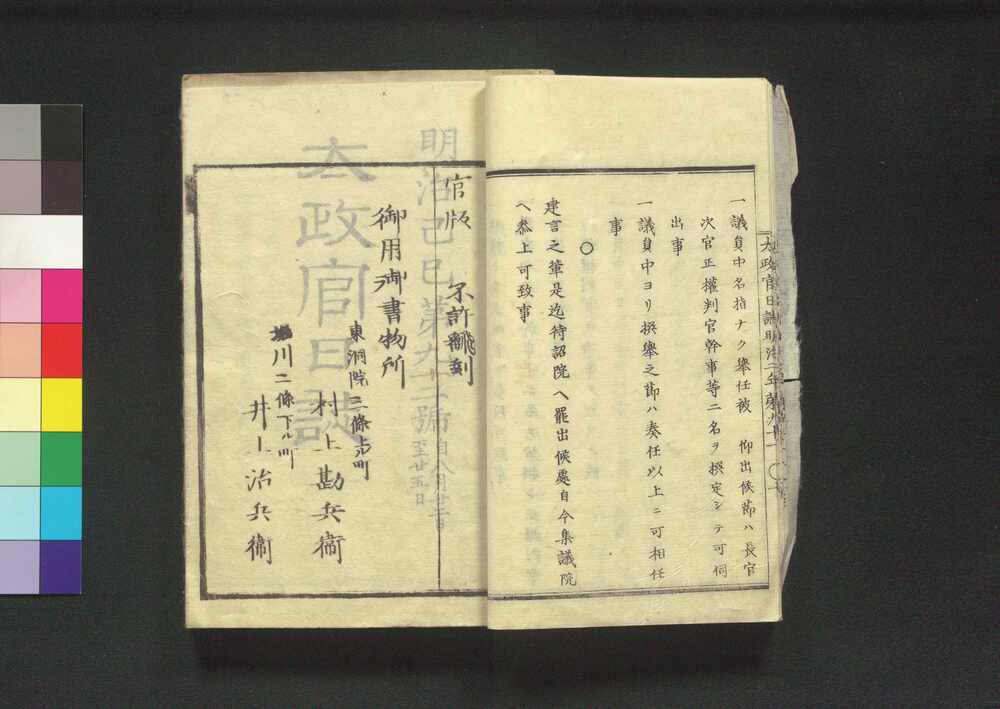 一議員中名指ナク舉任被　仰出候節ハ長官
次官正權判官幹事等二名ヲ撰定シテ可伺
出事
一議員中ヨリ撰舉之節ハ奏任以上ニ可相任
事
○
建言之筆是迄待詔院ヘ罷出候處自今集議院
ヘ參上可致事
太政官日誌明治二年第九十
官版　不許飜刻
御用御書物所
東洞院三條上ル町
村上勘兵衞
堀川二條下ル町
井上治兵衞
明治己巳第九十二號
自八月廿二日
至廿五日
太政官日誌